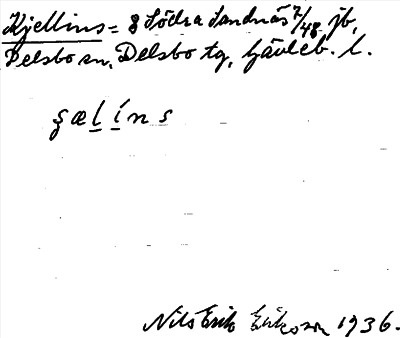 Kjellins = 8 Södra Sandnäs 7/48 jb,
Delsbo sn, Delsbo tg, Gävleb. l.
ʂælíns
Nils Erik Eriksson 1936.